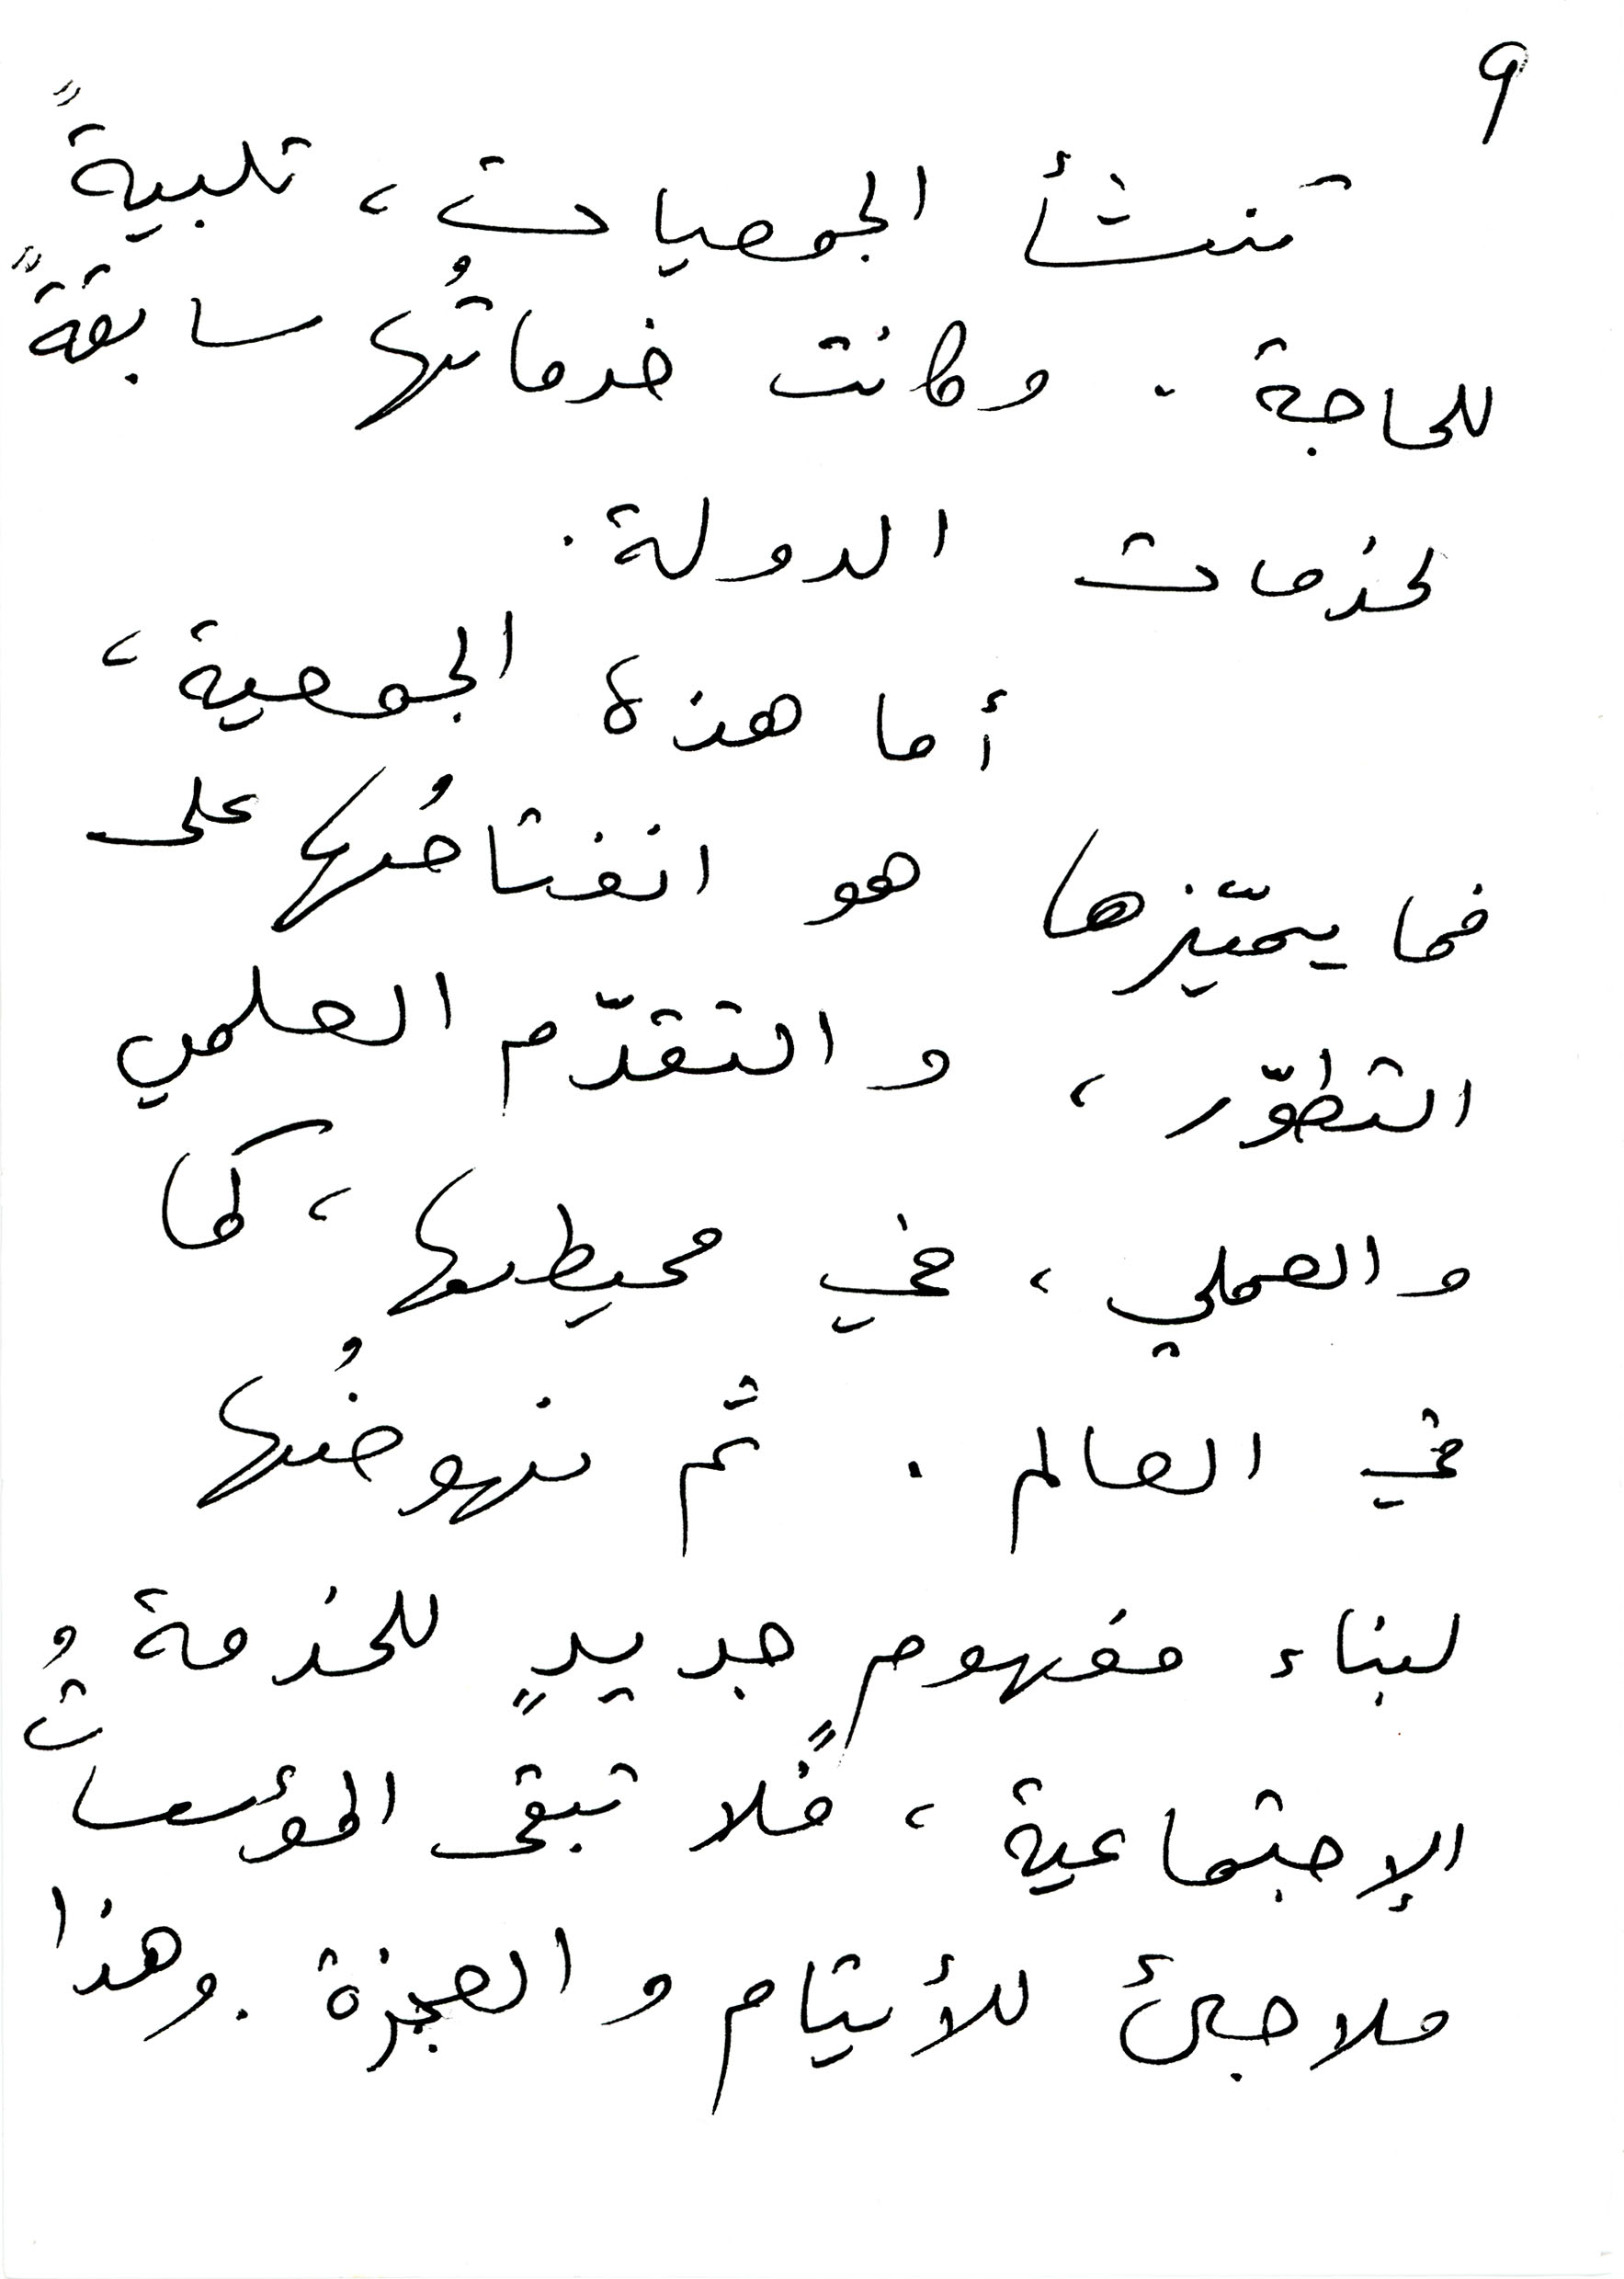 ٩
تنشأ الجمعيات، تلبيةً
للحاجة. وكانت خدماتُها سابقةً
لخدمات الدولة.
أما هذه الجمعية،
فما يميّزها هو انفتاحُها على
التطوّر، والتقدّم العلمي
والعملي، في محيطها، كما
في العالم. ثم نهوضُها
لبناء مفهوم جديدٍ للخدمة
الإجتماعية، فلا تبقى المؤسساتُ
ملاجئ للأيتام والعجزة. وهذا